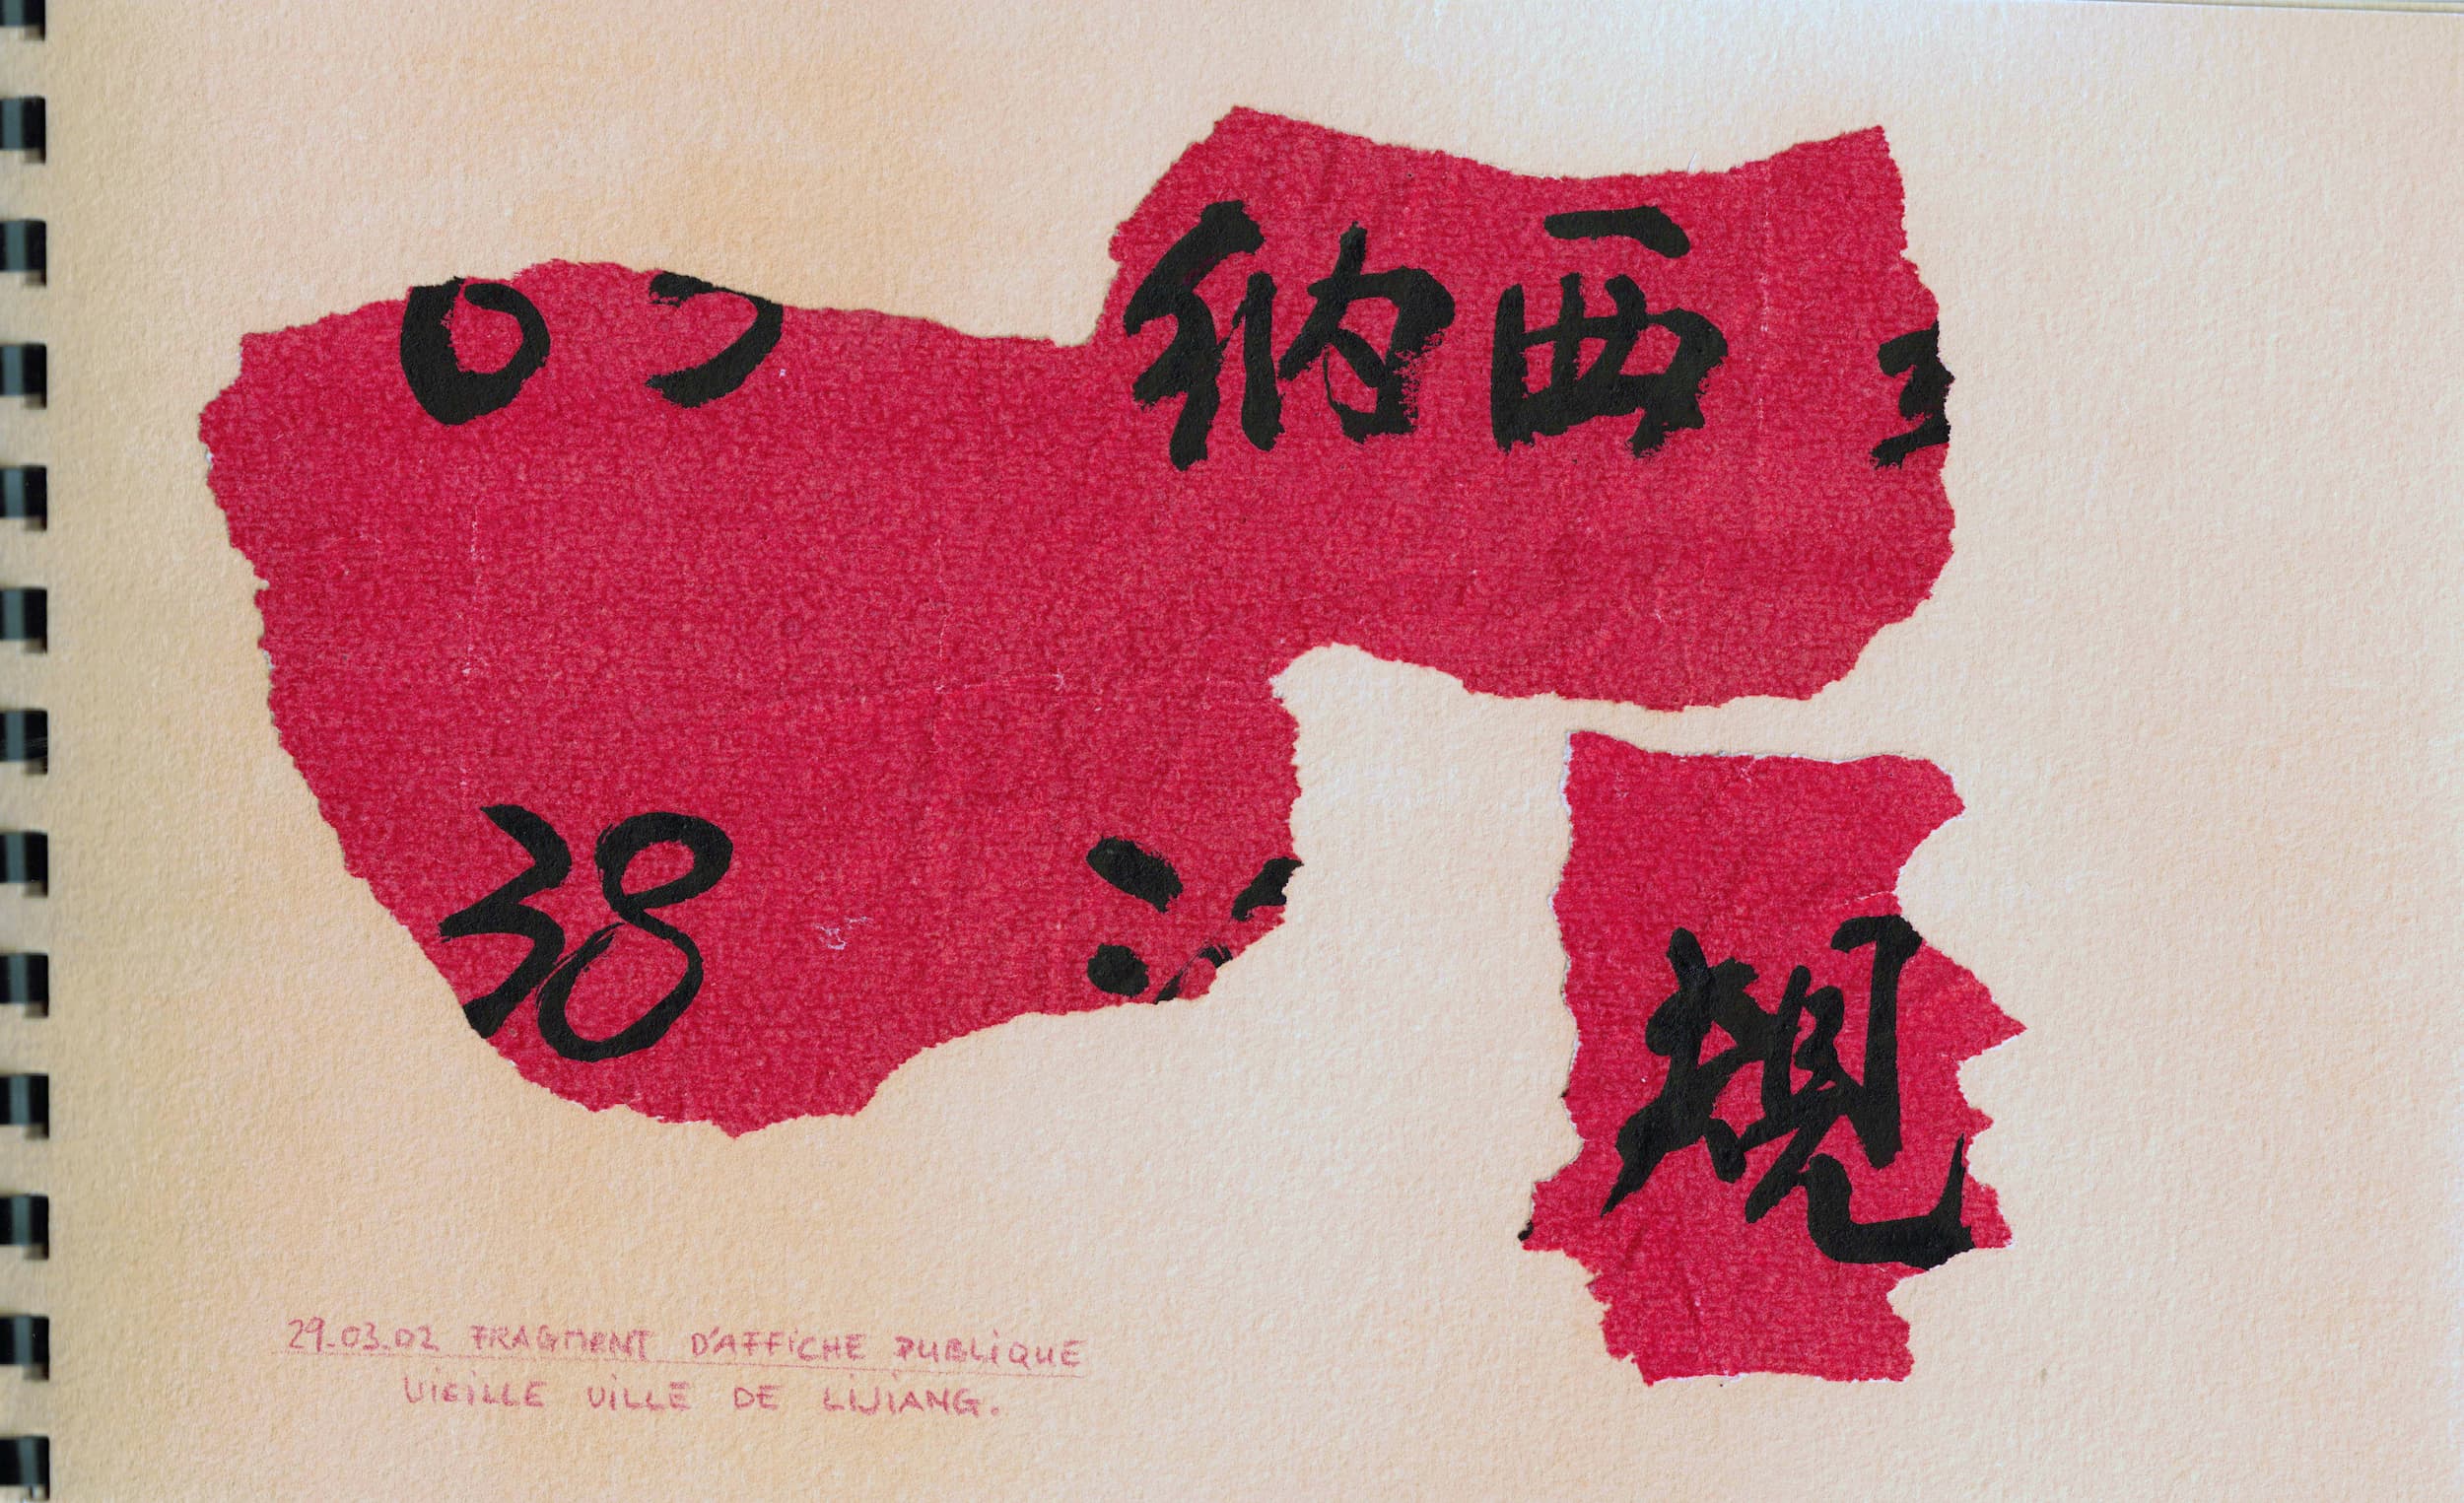 纳西
38
规
29.03.02 FRAGMENT D'AFFICHE PUBLIQUE
VIEILLE VILLE DE LIJIANG.